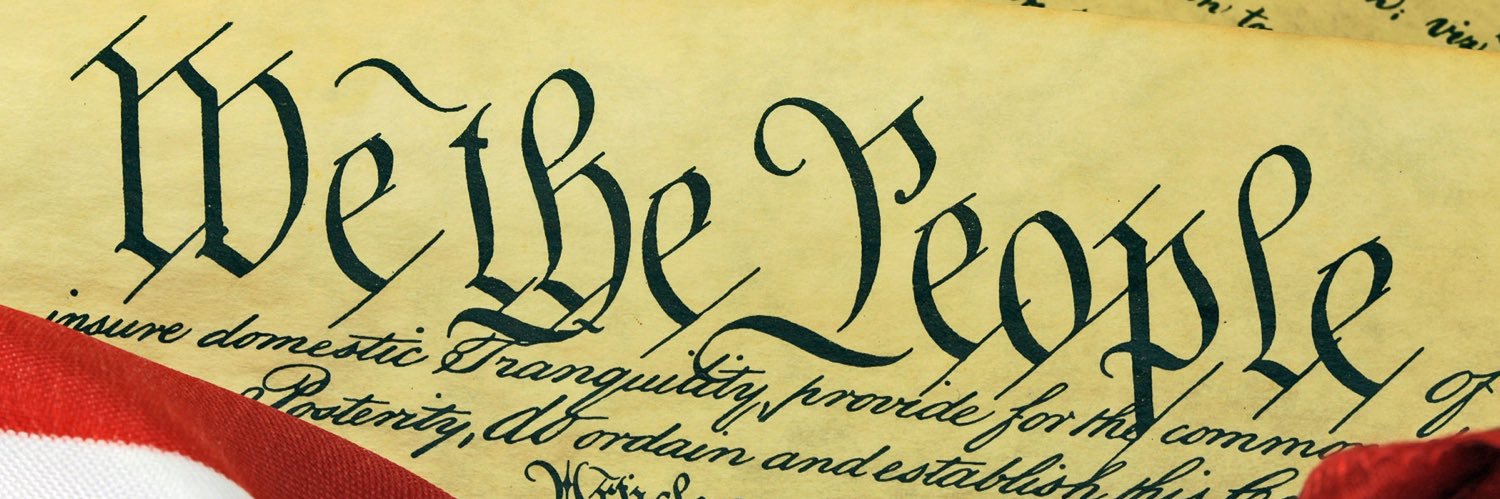 We the People of
insure domestic Tranquility, provide for the common
Posterity, do ordain and establish this